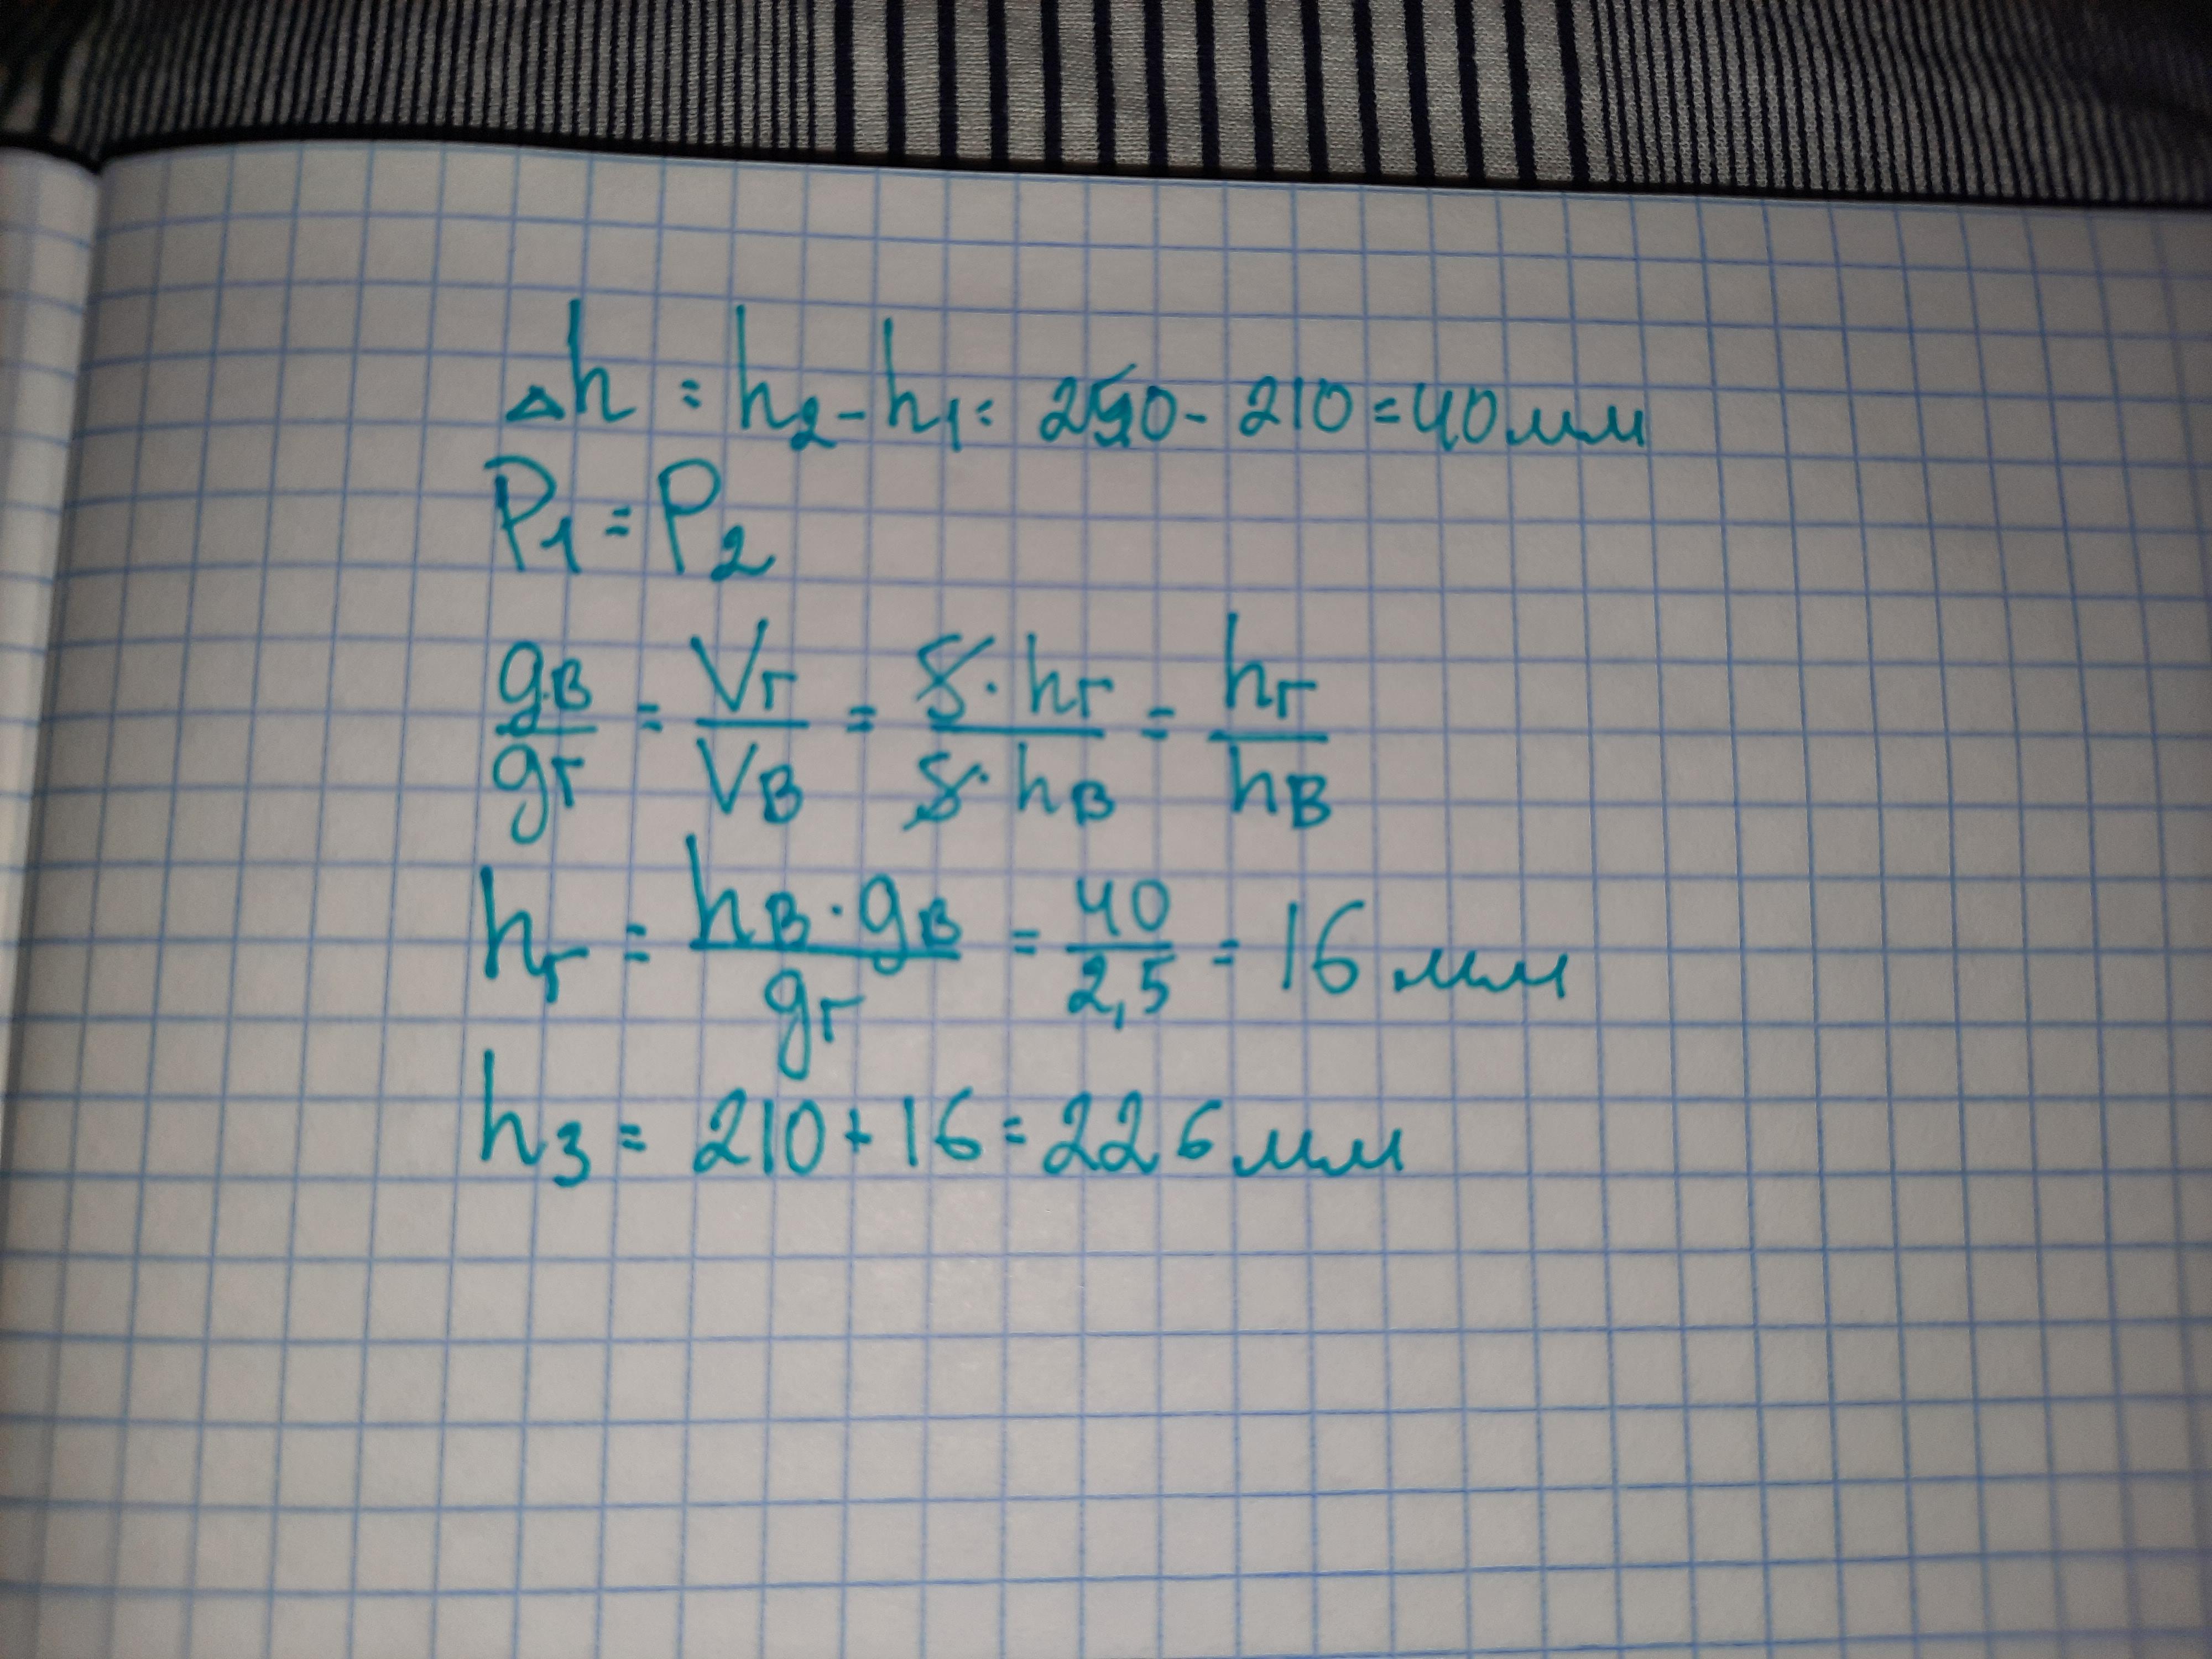 Δh = h₂ - h₁ = 250 - 210 = 40 мм
P₁ = P₂
gв/gг = Vг/Vв = S·hг/S·hв = hг/hв
hг = hв·gв/gг = 40/2,5 = 16 мм
h₃ = 210 + 16 = 226 мм